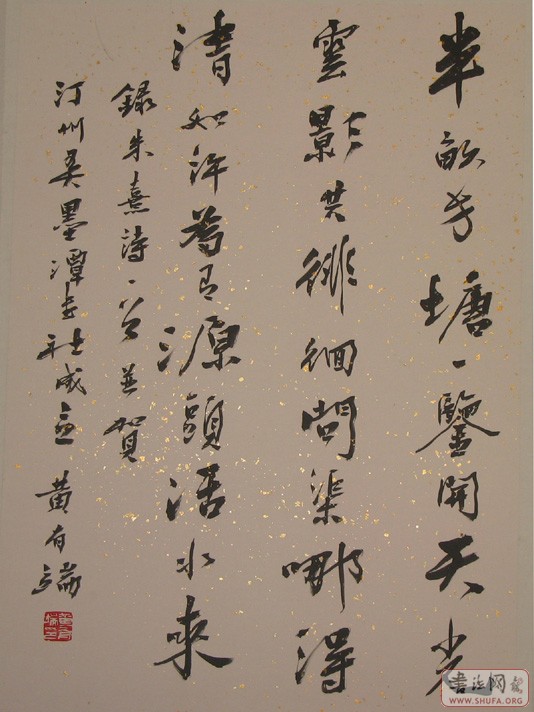 半畝方塘一鑒開天光
雲影共徘徊問渠哪得
清如許為有源頭活水來
錄朱熹詩一首並賀
汀州墨潭書社成立 黃有端
WWW.SHUFA.ORG